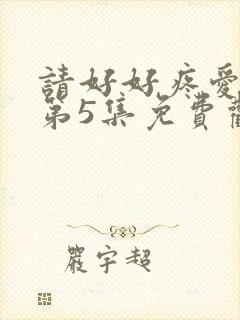 請好好疼愛
第5集免費
嚴宇超